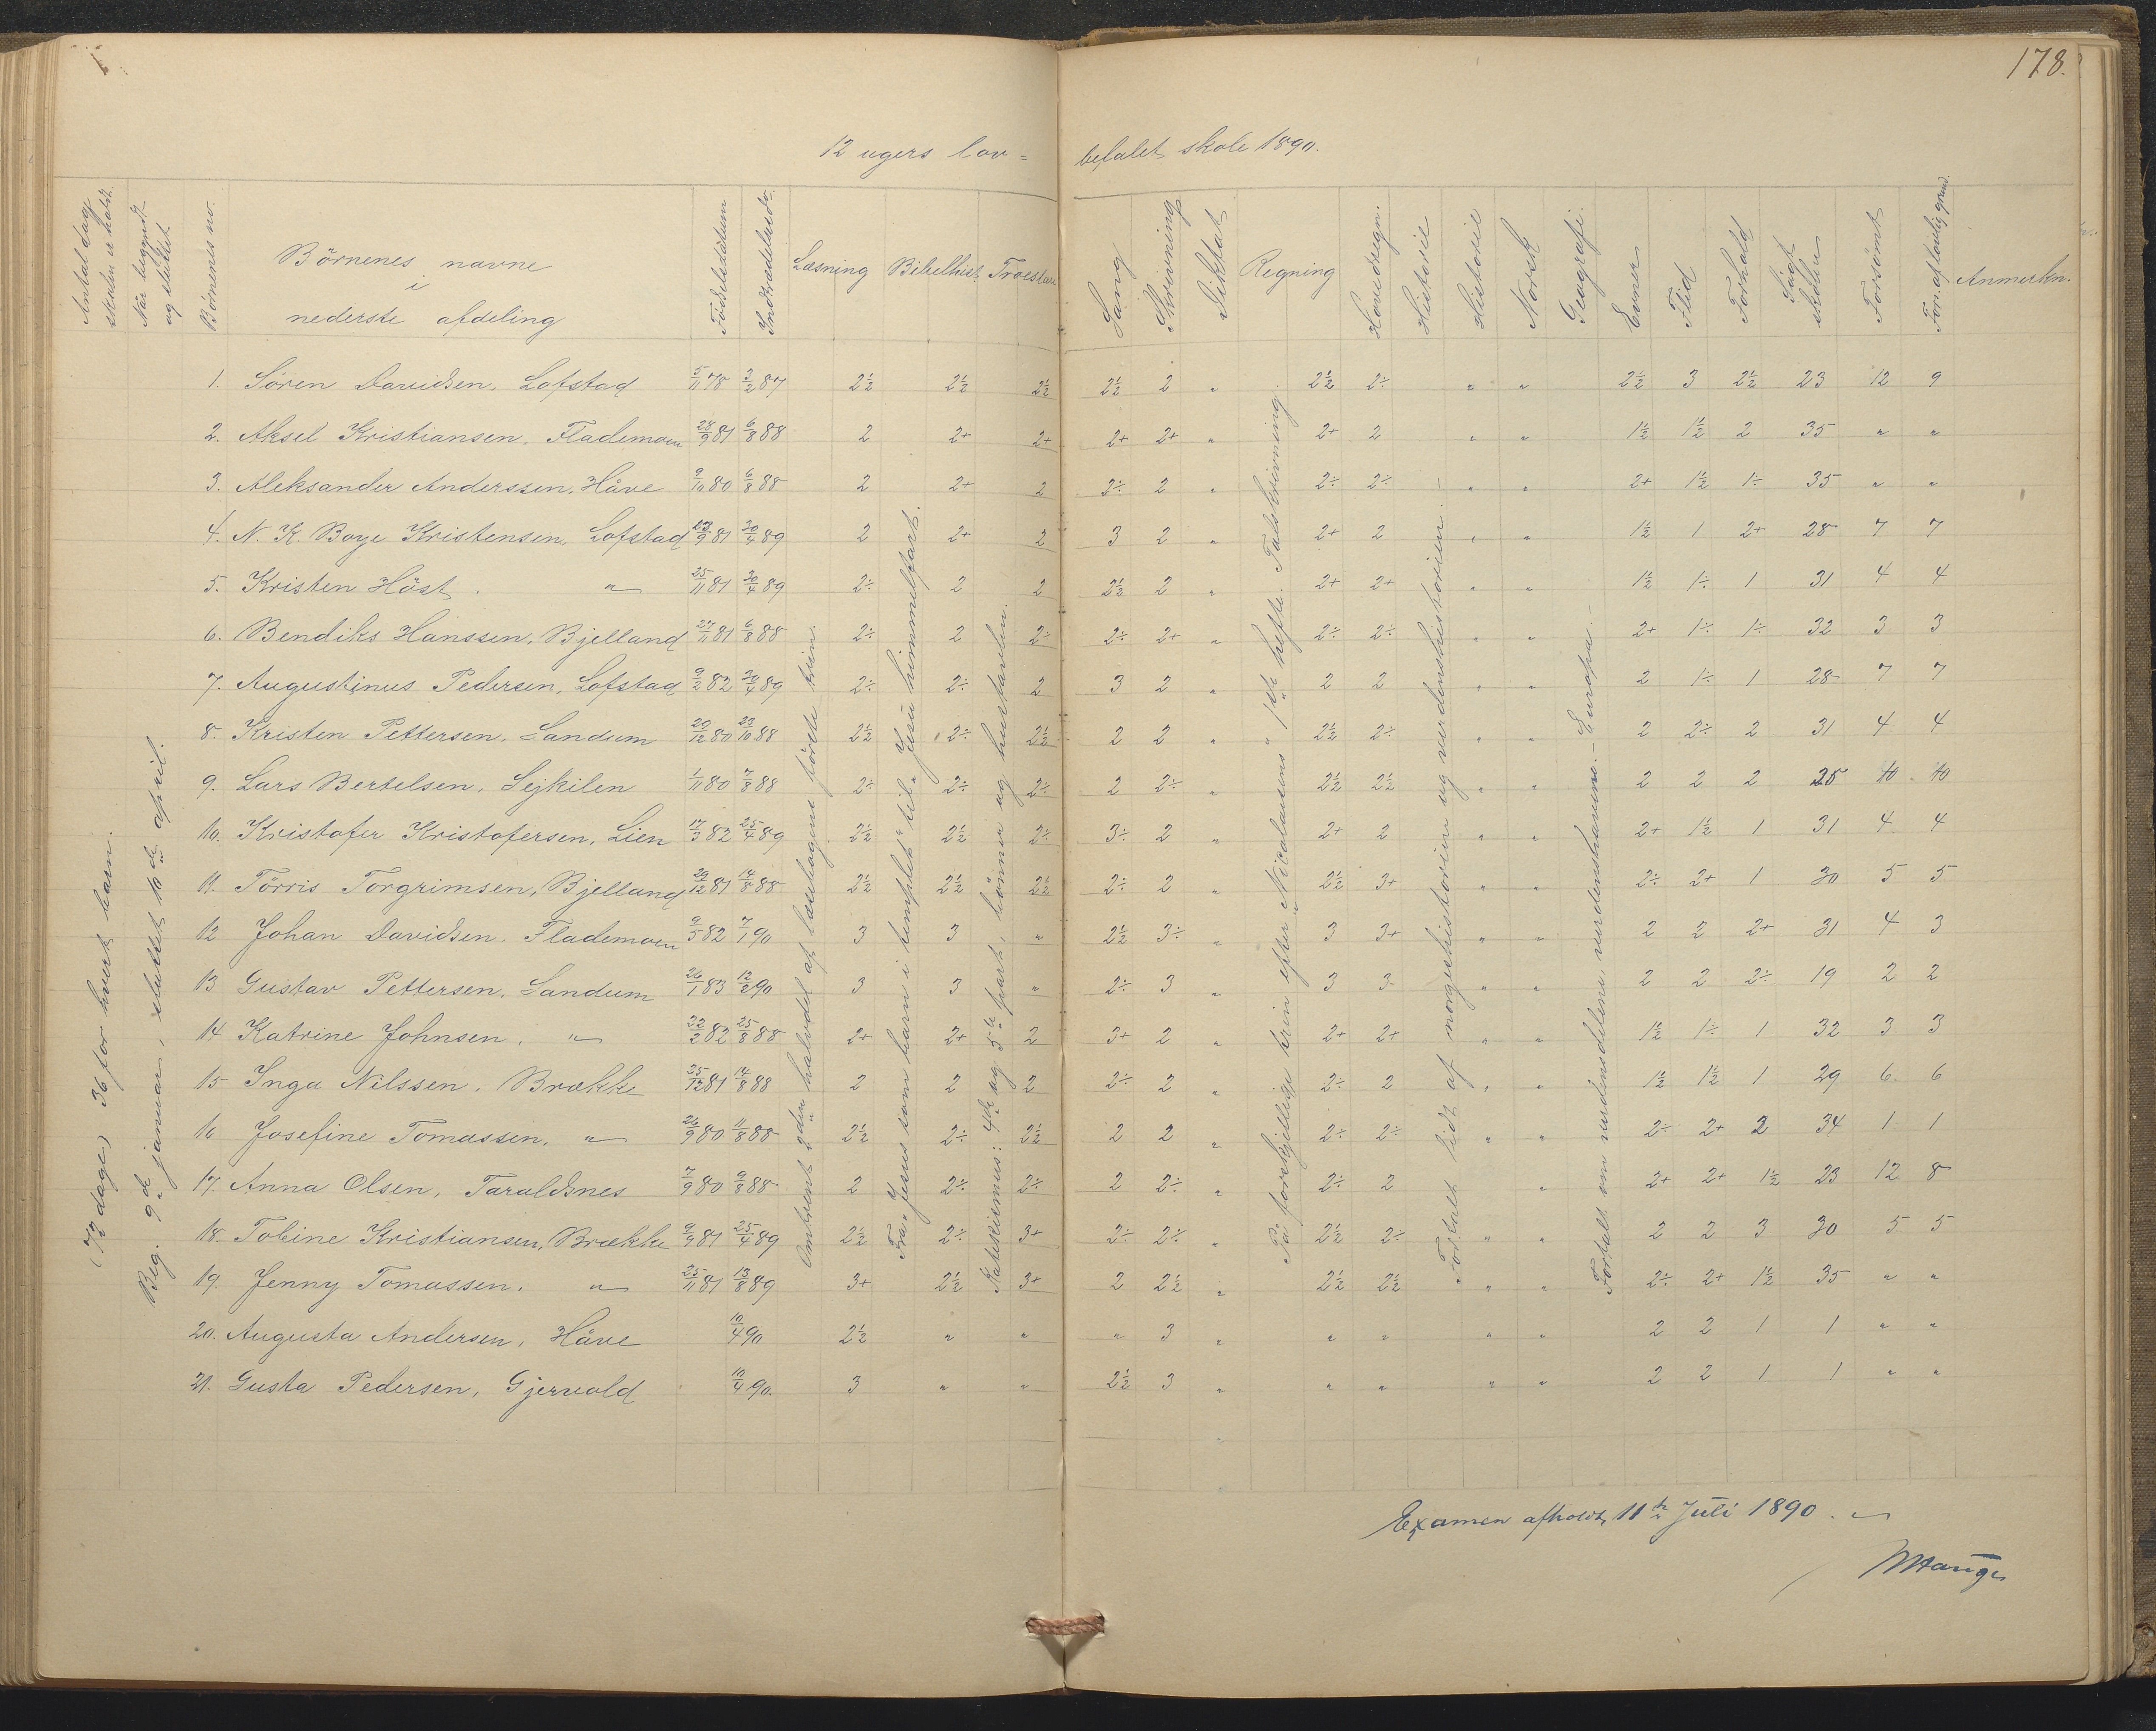 178.
12 ugers lov= befalet skole 1890.
Antal dage skolen er holdt.
Når begyndt og sluttet
Börnenes nr.
Börnenes navne i nederste afdeling
Födselsdatum
Indtrædelsesdr.
Læsning
Bibelhist.
Troeslære
Sang
Skrivning
Diktat
Regning
Hovedregn.
Historie
Historie
Norsk
Geografi.
Evner
Flid
Forhold
Søgt skolen
Forsømt
For. af lovlig grund.
Anmerkn.
(72 dage) 36 for hvert barn.
Beg. 9de januar, sluttet 10de april.
1. Sören Davidsen, Lofstad 5/11 78 3/2 87 2½ 2½ 2½ 2½ 2 " 2½ 2÷ " " 2½ 3 2½ 23 12 9
2. Aksel Kristiansen, Flademoen 28/9 81 6/8 88 2 2+ 2+ 2+ 2+ " 2+ 2 " " 1½ 1½ 2 35 " "
3. Aleksander Anderssen, Håve 9/10 80 6/8 88 2 2+ 2 2÷ 2 " 2÷ 2÷ " " 2+ 1½ 1÷ 35 " "
4. N. K. Boye Kristensen, Lofstad 23/9 81 30/4 89 2 2+ 2 3 2 " 2+ 2 " " 1½ 1 2+ 28 7 7
5. Kristen Höst. " 25/11 81 30/4 89 2÷ 2 2 2½ 2 " 2+ 2+ " " 1½ 1÷ 1 31 4 4
6. Bendiks Hanssen, Bjelland 27/11 81 6/8 88 2÷ 2 2÷ 2÷ 2+ " 2÷ 2÷ " " 2+ 1÷ 1÷ 32 3 3
7. Augustinus Pedersen, Lofstad 9/2 82 30/4 89 2÷ 2÷ 2 3 2 " 2 2 " " 2 1÷ 1 28 7 7
8. Kristen Pettersen, Sandum 29/12 80 23/10 88 2½ 2÷ 2½ 2 2 " 2½ 2÷ " " 2 2÷ 2 31 4 4
9. Lars Bertelsen, Sejkilen 1/11 80 7/8 88 2÷ 2÷ 2÷ 2 2÷ " 2½ 2½ " " 2 2 2 25 10 10
10. Kristofer Kristofersen, Lien 17/3 82 25/4 89 2½ 2½ 2÷ 3÷ 2 " 2+ 2 " " 2+ 1½ 1 31 4 4
11. Törris Torgrimsen, Bjelland 29/12 81 14/8 88 2½ 2½ 2½ 2÷ 2 " 2½ 3+ " " 2÷ 2+ 1 30 5 5
12 Johan Davidsen, Flademoen 9/5 82 7/1 90 3 3 " 2½ 3÷ " 3 3+ " " 2 2 2+ 31 4 3
13 Gustav Pettersen, Sandum 26/1 83 12/2 90 3 3 " 2÷ 3 " 3 3- " " 2 2 2÷ 19 2 2
14 Katrine Johnsen, " 22/2 82 25/8 88 2+ 2+ 2 3+ 2 " 2+ 2+ " " 1½ 1÷ 1 32 3 3
15 Inga Nilssen, Brække 25/12 81 14/8 88 2 2 2 2÷ 2 " 2÷ 2 " " 1½ 1½ 1 29 6 6
16 Josefine Tomassen, " 26/9 80 11/8 88 2½ 2÷ 2½ 2 2 " 2÷ 2÷ " " 2÷ 2+ 2 34 1 1
17. Anna Olsen, Taraldsnes 7/9 80 9/8 88 2 2÷ 2÷ 2 2÷ " 2÷ 2 " 2+ 2+ 1½ 23 12 8
18. Tobine Kristiansen, Brække 9/9 81 25/4 89 2½ 2÷ 3+ 2÷ 2÷ " 2½ 2÷ " " 2 2 3 30 5 5
19. Jenny Tomassen, " 25/11 81 13/8 89 3+ 2½ 3+ 2 2½ " 2½ 2½ " " 2÷ 2+ 1½ 35 " "
20. Augusta Andersen, Håve 10/4 90 2½ " " " 3 " " " " " 2 2 1 1 " "
21. Gusta Pedersen, Gjervold 10/4 90. 3 " " 2½ 3 " " " " " 2 2 1 1 " "
Omtrent 2den halvdel af læsebogens förste trin.
Fra „Jesus som barn i templet" til „Jesu himmelfart.
Katekismus: 4de og 5te part, bönner og hustavlen.
På forskjellige trin efter „Nicolaisens" 1ste hefte. Talskrivning.
Fortalt lidt af norgeshistorien og verdenshistorien.
Fortalt om verdensdelene, verdenshavene – Europa. –
Examen afholdt 11te Juli 1890.
MHauge